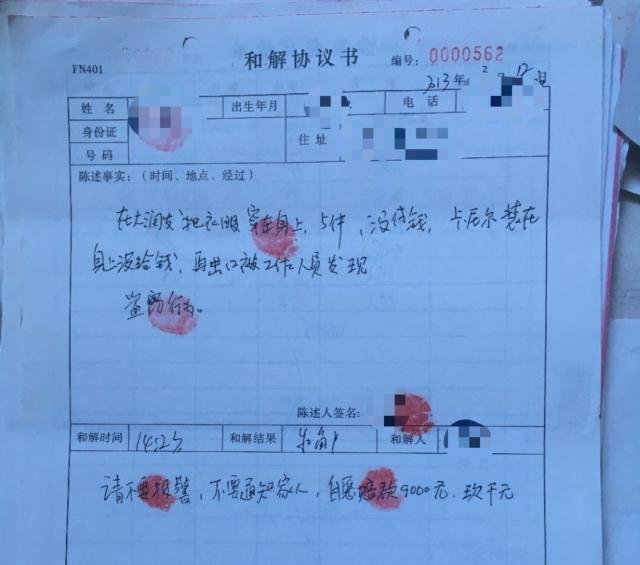 和解协议书
FN401
编号: 0000562
2013年 2 12
姓名
出生年月
电话
身份证
号码
住址
陈述事实:(时间、地点、经过)
在大润发把衣服穿在身上,5件,没付钱,
装在
身上没给钱,再出口被工作人员发现
盗窃行为。
陈述人签名:
和解时间
和解结果
和解人
请不要报警,不要通知家人,自愿赔款9000元.玖千元